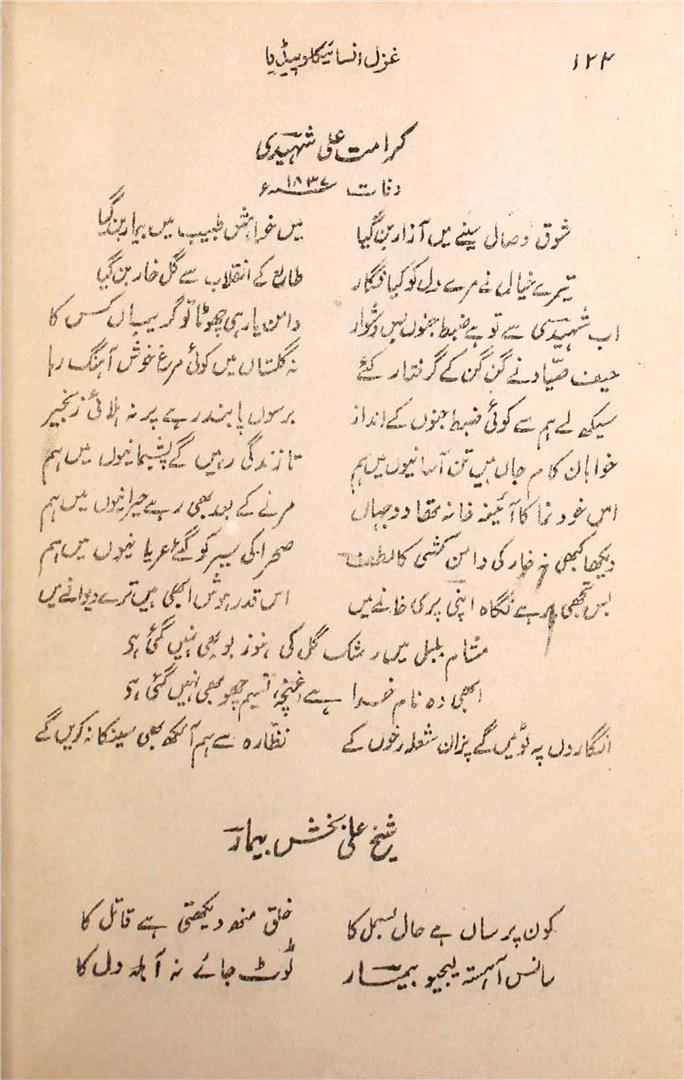 ۱۲۴ غزل انسائیکلوپیڈیا
کرامت علی شہیدی
وفات ۱۸۳۷ء
شوق وصال سینے میں آزار بن گیا میں خواہش طبیب میں بیمار بن گیا
تیرے خیال نے مرے دل کو کیا فگار طالع کے انقلاب سے گل خار بن گیا
اب شہیدی سے تو ہے ضبط جنوں بس دشوار دامن یار ہی چھوٹا تو گریباں کس کا
حیف صیّاد نے گن گن کے گرفتار کئے نہ گلستاں میں کوئی مرغ خوش آہنگ رہا
سیکھ لے ہم سے کوئی ضبط جنوں کے انداز برسوں پابند رہے پر نہ ہلائی زنجیر
خواہان کام جاں ہیں تن آسانیوں میں ہم تا زندگی رہیں گے پشیمانیوں میں ہم
اس خود نما کا آئینہ خانہ تھا دو جہاں مرنے کے بعد بھی رہے حیرانیوں میں ہم
دیکھا کبھی نہ خار کی دامن کشی کا لطف صحرا کی سیر کو گئے عریانیوں میں ہم
بس تجھی پر ہے نگاہ اپنی پری خانے میں اس قدر ہوش ابھی ہیں ترے دیوانے میں
مشام بلبل میں رشک گل کی ہنوز بو بھی نہیں گئی ہے
ابھی وہ نام خدا ہے غنچہ، نسیم چھو بھی نہیں گئی ہے
انگاروں پہ لوٹیں گے پر ان شعلہ رخوں کے نظّارہ سے ہم آنکھ بھی سینکا نہ کریں گے
شیخ علی بخش بیمار
کون پرساں ہے حال بسمل کا خلق منھ دیکھتی ہے قاتل کا
سانس آہستہ لیجیو بیمار ٹوٹ جائے نہ آبلہ دل کا